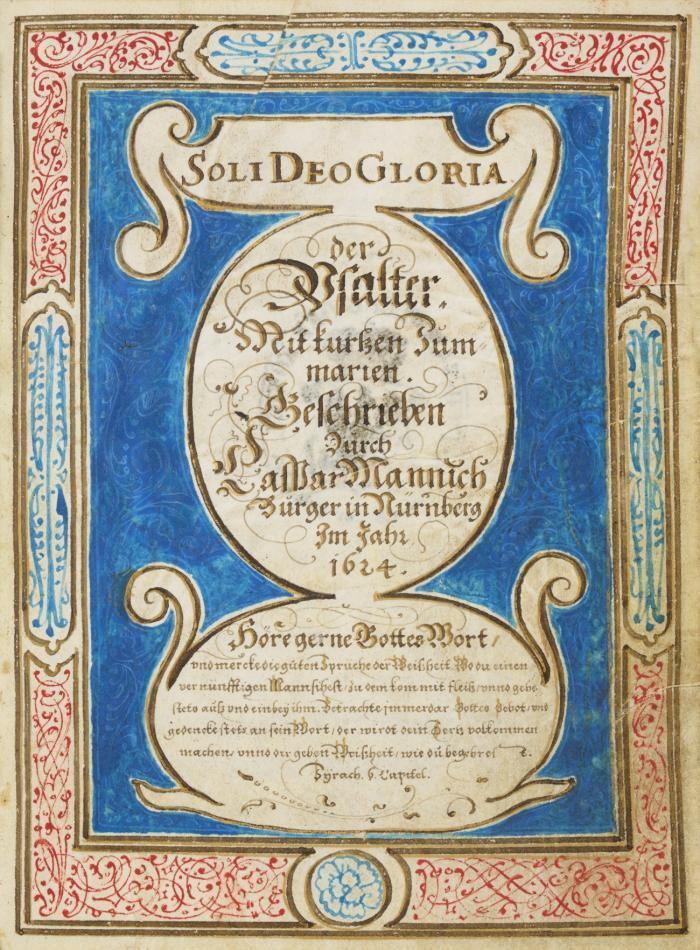 SOLI DEO GLORIA
der
Psalter.
Mit kurtzen Sum
marien.
Geschrieben
Durch
Caspar Mannich
Burger in Nürnberg
Im Jahr
1624.
Höre gerne Gottes Wort /
vnd mercke die güten Sprüche der Weißheit. Wo du einen
vernünfftigen Mann sihest / zu dem kom mit fleiß / vnnd gehe
stets auß vnd ein bey ihm. Betrachte jmmerdar Gottes Gebot / vnd
gedencke stets an sein Wort / der wirdt dein Hertz volkommen
machen / vnnd dir geben Weißheit / wie dü begehrest
Syrach. 6. Capitel.